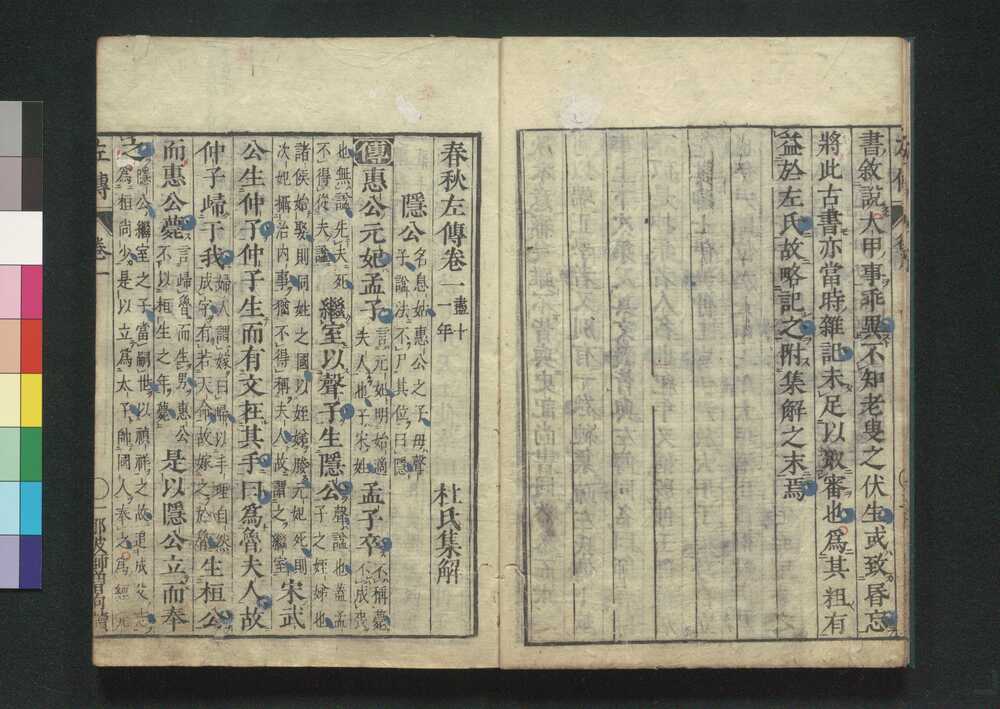 書敘說大甲事乖異不知老叟之伏生或致昬忘
將此古書亦當時雜記未足以取審也爲其粗有
益於左氏故略記之附集解之末焉
春秋左傳卷一
盡十
一年
杜氏集解
隱公
名息姑惠公之子母聲
子諡法不尸其位曰隱
傳惠公元妃孟子
言元妃明始適
夫人也子宋姓
孟子卒
不稱薨
不成喪
也無諡先夫死
不得從夫諡
繼室以聲子生隱公
聲諡也蓋孟
子之姪娣也
諸侯始娶則同姓之國以姪娣媵元妃死則
次妃攝治内事猶不得稱夫人故謂之繼室
宋武
公生仲子仲子生而有文在其手曰爲魯夫人故
仲子歸于我
婦人謂嫁曰歸以手理自然
成字有若天命故嫁之於魯
生桓公
而惠公薨
言歸魯而生男惠公
不以桓生之年薨
是以隱公立而奉
之
隱公繼室之子當嗣世以禎祥之故追成父志
爲桓尚少是以立爲太子帥國人奉之爲經元
左傳
卷一